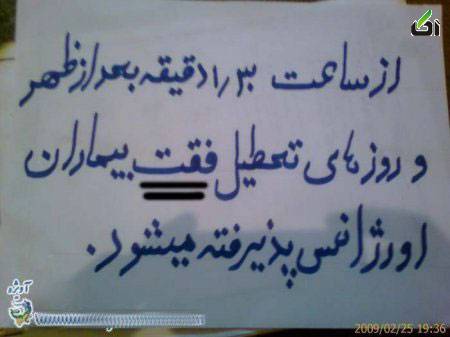 آکا
از ساعت ۱٫۳۰ دقیقه بعد از ظهر
و روزهای تحطیل فقت بیماران
اورژانس پذیرفته میشود.
آوازه
2009/02/25 19:36